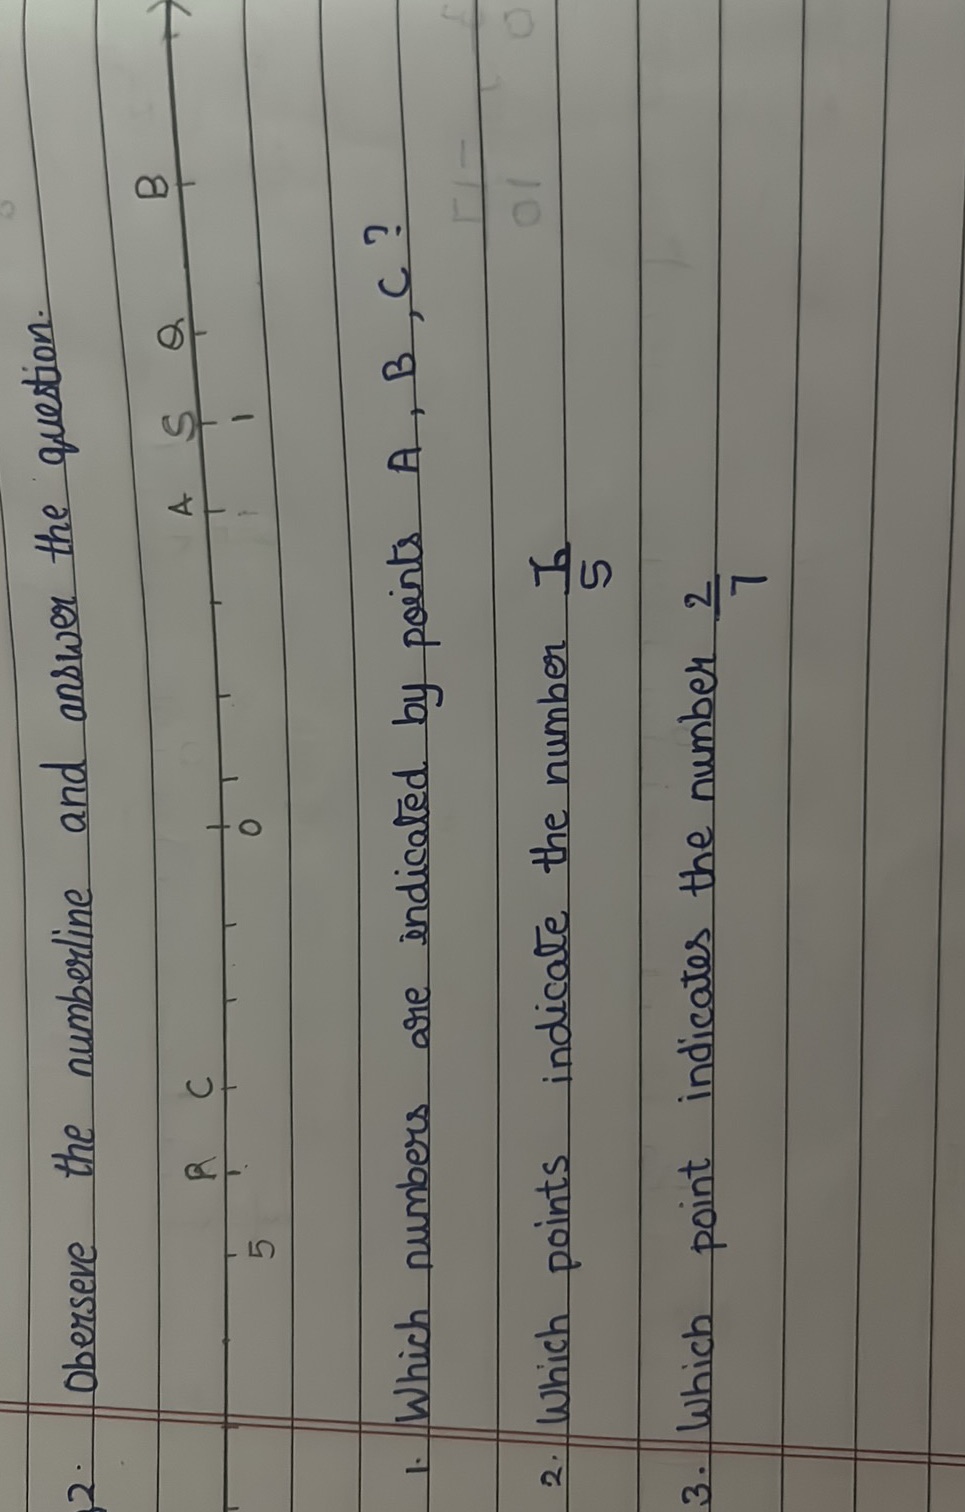 2. Oberseve the numberline and answer the question.
R C A S Q B
5 0 1
1. Which numbers are indicated by points A, B, C?
2. Which points indicate the number 
5
3. Which point indicates the number 2
7